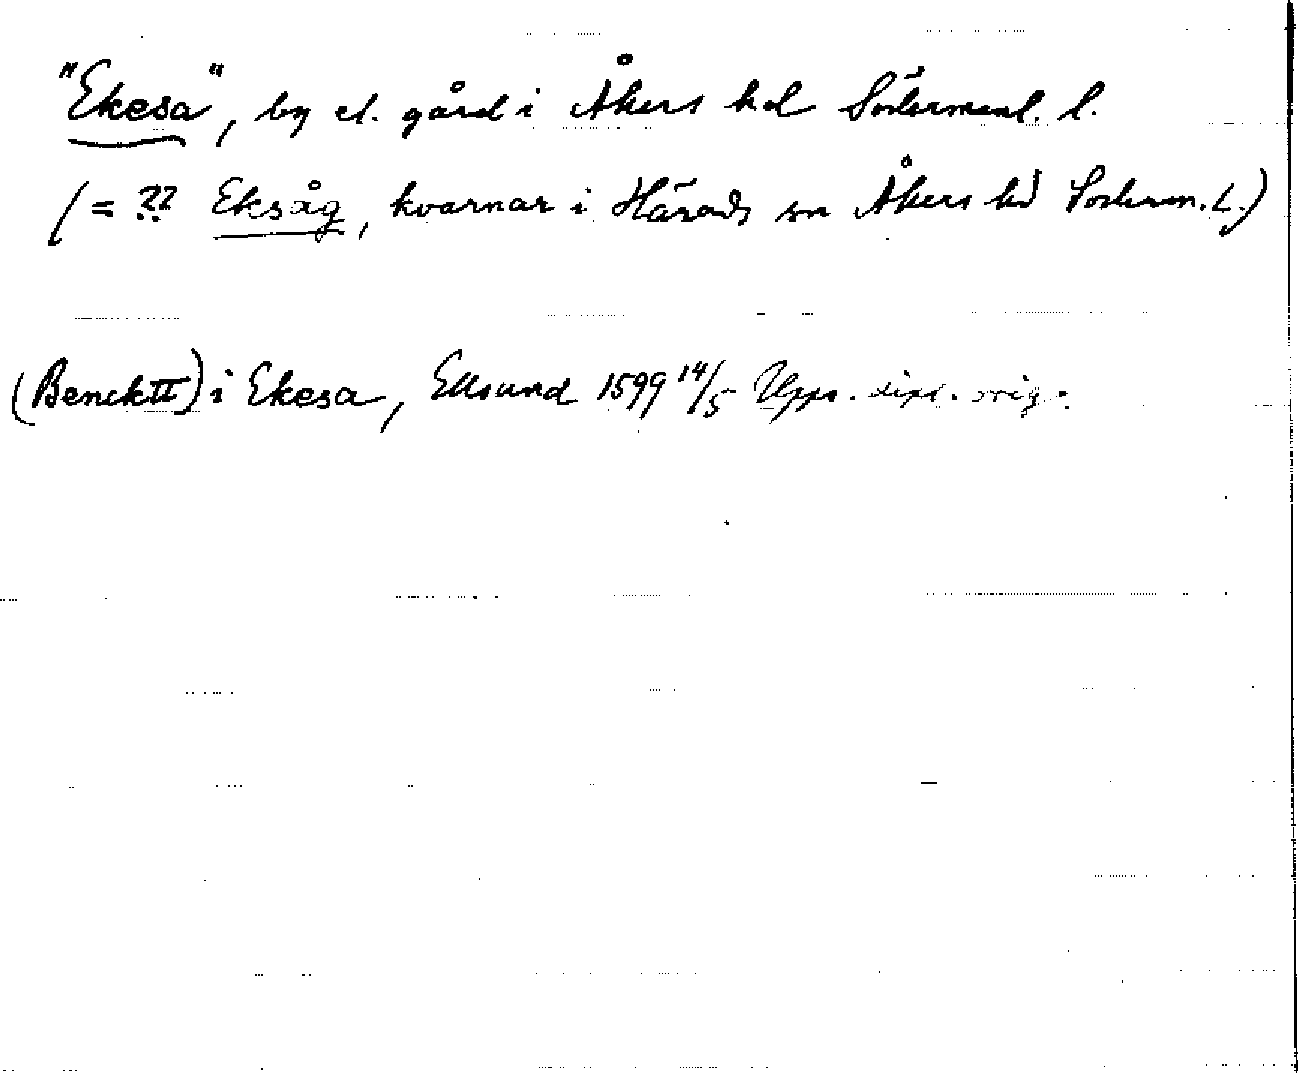 "Ekesa", by el. gård i Åkers hd Södermanl. l.
(= ?? Eksåg, kvarnar i Härads sn Åkers hd Söderm. L.)
(Benckt) i Ekesa, Edsund 1599 14/5 Upps. dipl. orig.